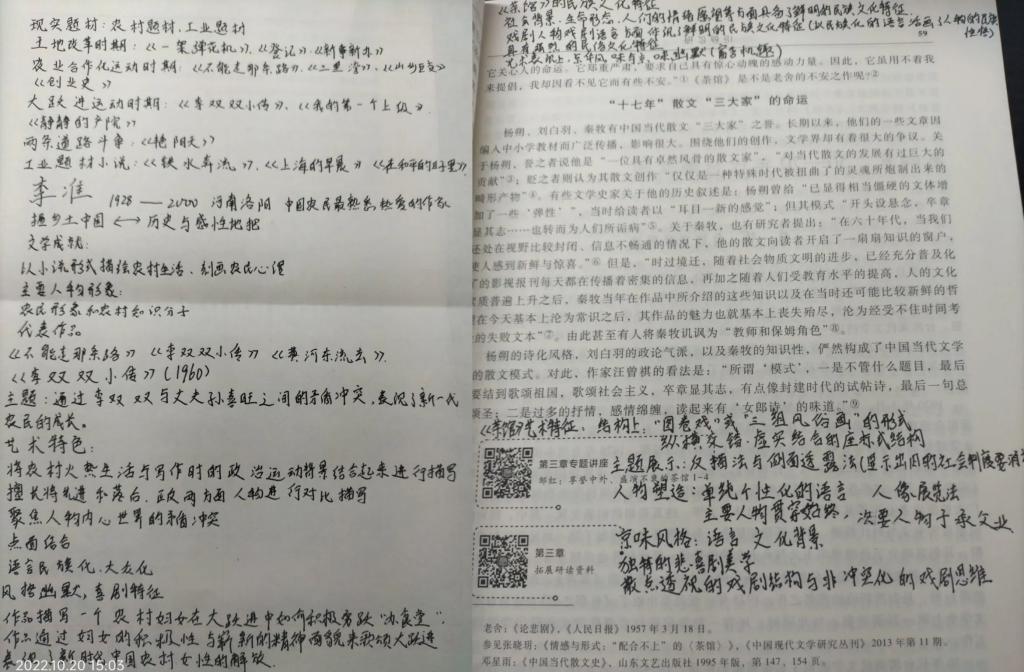 现实题材：农村题材，工业题材
土地改革时期：《一架弹花机》、《登记》、《新事新办》
农业合作化运动时期：《不能走那条路》、《三里湾》、《山乡巨变》
《创业史》
大跃进运动时期：《李双双小传》、《我的第一个上级》
《静静的产院》
两条道路斗争：《艳阳天》
工业题材小说：《铁水奔流》、《上海的早晨》《在和平的日子里》
李准 1928——2000 河南洛阳 中国农民最热爱的作家
描乡土中国 ←→ 历史与感性地把
文学成就：
以小说形式描绘农村生活、刻画农民心理
主要人物形象：
农民形象和农村知识分子
代表作品
《不能走那条路》《李双双小传》《黄河东流去》
《李双双小传》(1960)
主题：通过李双双与丈夫孙喜旺之间的矛盾冲突，表现了新一代
农民的成长。
艺术特色：
将农村火热生活与写作时的政治运动背景结合起来进行描写
擅长将先进与落后、正反两方面人物进行对比描写
聚焦人物内心世界的矛盾冲突
点面结合
语言民族化、大众化
风格幽默，喜剧特征
作品描写一个农村妇女在大跃进中如何积极旁跃"办食堂"
作品通过妇女的积极性与崭新的精神面貌来歌颂大跃进
表现了新时代中国农村女性的解放
2022.10.20 15:03
《茶馆》的民族文化特征
社会背景、生命形态、人们的情绪愿望等方面具备了鲜明的民族文化特征
戏剧人物戏剧语言方面体现了鲜明的民族文化特征（以民族化的语言活画了人物的民族性格）
具有强烈的民俗文化特征
艺术表现上，京华风味与京味幽默（寓言机趣）
59
它关心人的命运。它郑重严肃，要求自己具有惊心动魄的感动力量。因此，它虽用不着我
来提倡，我却因看不见它而有些不安。"①《茶馆》是不是老舍的不安之作呢?②
"十七年"散文"三大家"的命运
杨朔、刘白羽、秦牧有中国当代散文"三大家"之誉。长期以来，他们的一些文章因
编入中小学教材而广泛传播，影响很大。围绕他们的创作，文学界却有着很大的争议。关
于杨朔，誉之者说他是"一位具有卓然风骨的散文家"，"对当代散文的发展有过巨大的
贡献"③；贬之者则认为其散文创作"仅仅是一种特殊时代被扭曲了的灵魂所炮制出来的
畸形产物"④。有些文学史家关于他的历史叙述是：杨朔曾给"已显得相当僵硬的文体增
加了一些'弹性'"，当时给读者以"耳目一新的感觉"；但其模式"开头设悬念，卒章
显其志……也转而为人们所诟病"⑤。关于秦牧，也有研究者提出："在六十年代，当我们
还处在视野比较封闭、信息不畅通的情况下，他的散文向读者开启了一扇扇知识的窗户，
使人感到新鲜与惊喜。"⑥但是，"时过境迁，随着社会物质文明的进步，已经充分普及化
了的影视报刊每天都在传播着密集的信息，再加之随着人们受教育水平的提高，人的文化
素质普遍上升之后，秦牧当年在作品中所介绍的这些知识以及在当时还可能比较新鲜的哲
理在今天基本上沦为常识之后，其作品的魅力也就基本上丧失殆尽，沦为经受不住时间考
验的失败文本"⑦。由此甚至有人将秦牧讥讽为"教师和保姆角色"⑧。
杨朔的诗化风格，刘白羽的政论气派，以及秦牧的知识性，俨然构成了中国当代文学
的散文模式。对此，作家汪曾祺的看法是："所谓'模式'，一是不管什么题目，最后
要结到歌颂祖国，歌颂社会主义，卒章显其志，有点像封建时代的试帖诗，最后一句总
颂圣；二是过多的抒情，感情缠绵，读起来有'女郎诗'的味道。"⑨
《茶馆》艺术特征：结构上："图卷戏"或"三组风俗画"的形式
纵横交错、虚实结合的座标式结构
第三章专题讲座
主题展示：反描法与侧面透露法（显示出旧的社会制度要消亡
邹红：享誉中外、盛演不衰的茶馆 1-4
人物塑造：单纯个性化的语言 人像展览法
主要人物贯穿始终，次要人物子承父业
第三章
拓展研读资料
京味风格：语言 文化背景
独特的悲喜剧美学
散点透视的戏剧结构与非冲突化的戏剧思维
老舍：《论悲剧》，《人民日报》1957年3月18日。
参见张晓玥：《情感与形式："配合不上"的〈茶馆〉》，《中国现代文学研究丛刊》2013年第11期。
邓星雨：《中国当代散文史》，山东文艺出版社1995年版，第147、154页。